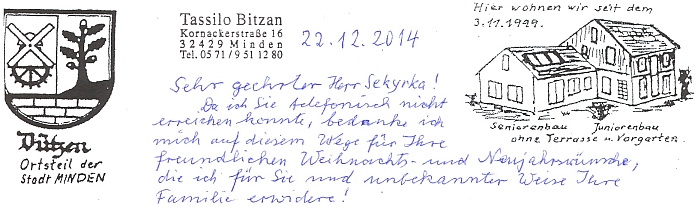 Tassilo Bitzan
Kornackerstraße 16
32429 Minden
Tel. 0571/9511280
22.12.2014
Hier wohnen wir seit dem
3.11.1999.
Seniorenbau Juniorenbau
ohne Terrasse u. Vorgarten.
Dützen
Ortsteil der
Stadt MINDEN
Sehr geehrter Herr Sekyrka!
Da ich Sie telefonisch nicht
erreichen konnte, bedanke ich
mich auf diesem Wege für Ihre
freundlichen Weihnachts- und Neujahrswünsche,
die ich für Sie und unbekannter Weise Ihre
Familie erwidere!